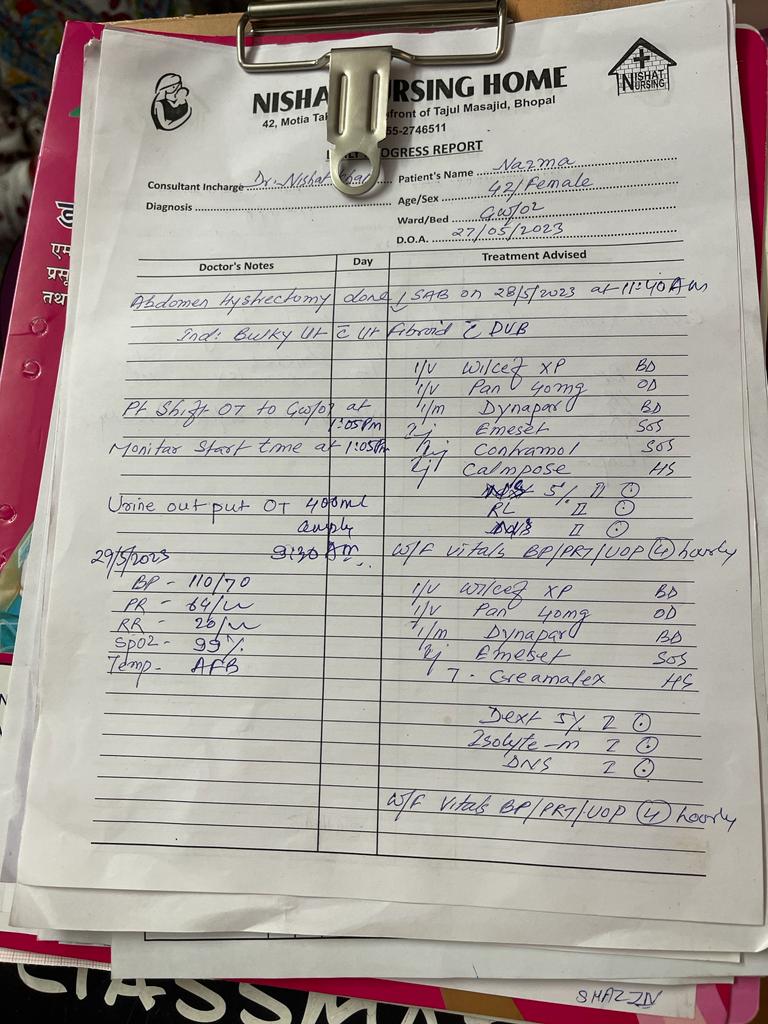 NISHA RSING HOME
NISHAT
NURSING
42, Motia Ta front of Tajul Masajid, Bhopal
55-2746511
OGRESS REPORT
Consultant Incharge Dr. Nishat Khan
Patient's Name Nazma
Diagnosis
Age/Sex 42/Female
Ward/Bed GW/02
D.O.A. 27/05/2023
Doctor's Notes Day Treatment Advised
Abdomen Hystrectomy done SAB on 28/5/2023 at 11:40 AM
Ind: Bulky Ut c̄ Ut Fibroid c̄ DUB
I/V Wilcef XP BD
I/V Pan 40mg OD
Pt Shift OT to GW/02 at 1:05 Pm
I/m Dynapar BD
Inj Emeset SOS
Monitar Start time at 1:05 Pm
Inj Contramol SOS
Inj Calmpose HS
5% II
Urine out put OT 400ml
RL II
II
29/5/2023 9:30 AM
W/F Vitals BP/PRT/UOP 4 hourly
BP - 110/70
I/V Wilcef XP BD
PR - 64/
I/V Pan 40mg OD
RR - 20/
I/m Dynapar BD
SpO2 - 99%
Inj Emeset SOS
Temp - AFB
T. Creamafex HS
Dext 5% I
Isolyte-m I
DNS I
W/F Vitals BP/PRT/UOP 4 hourly
SHAZZIN